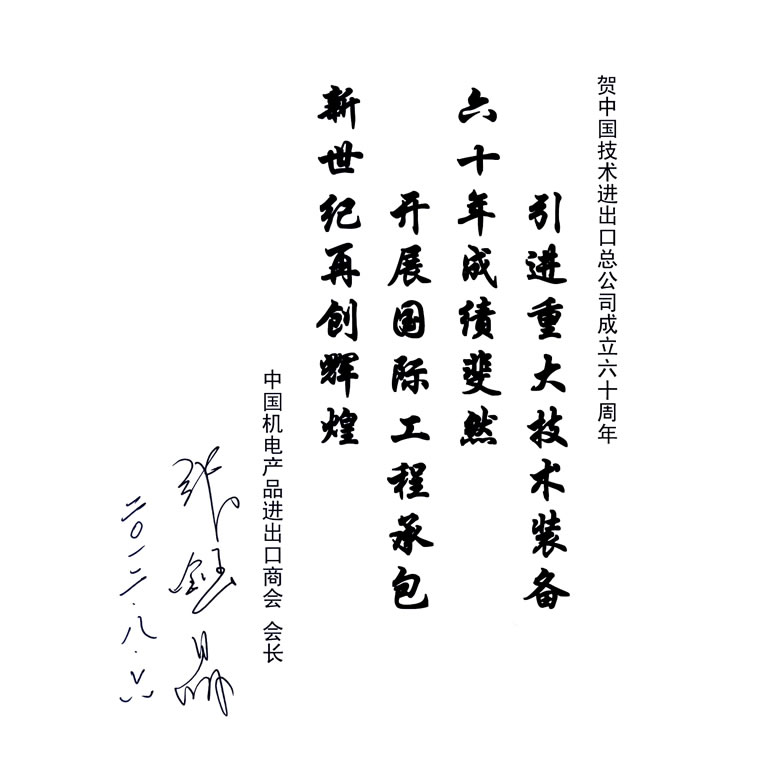 贺中国技术进出口总公司成立六十周年
引进重大技术装备
六十年成绩斐然
开展国际工程承包
新世纪再创辉煌
中国机电产品进出口商会 会长
张钰晶
二〇一二.八.六